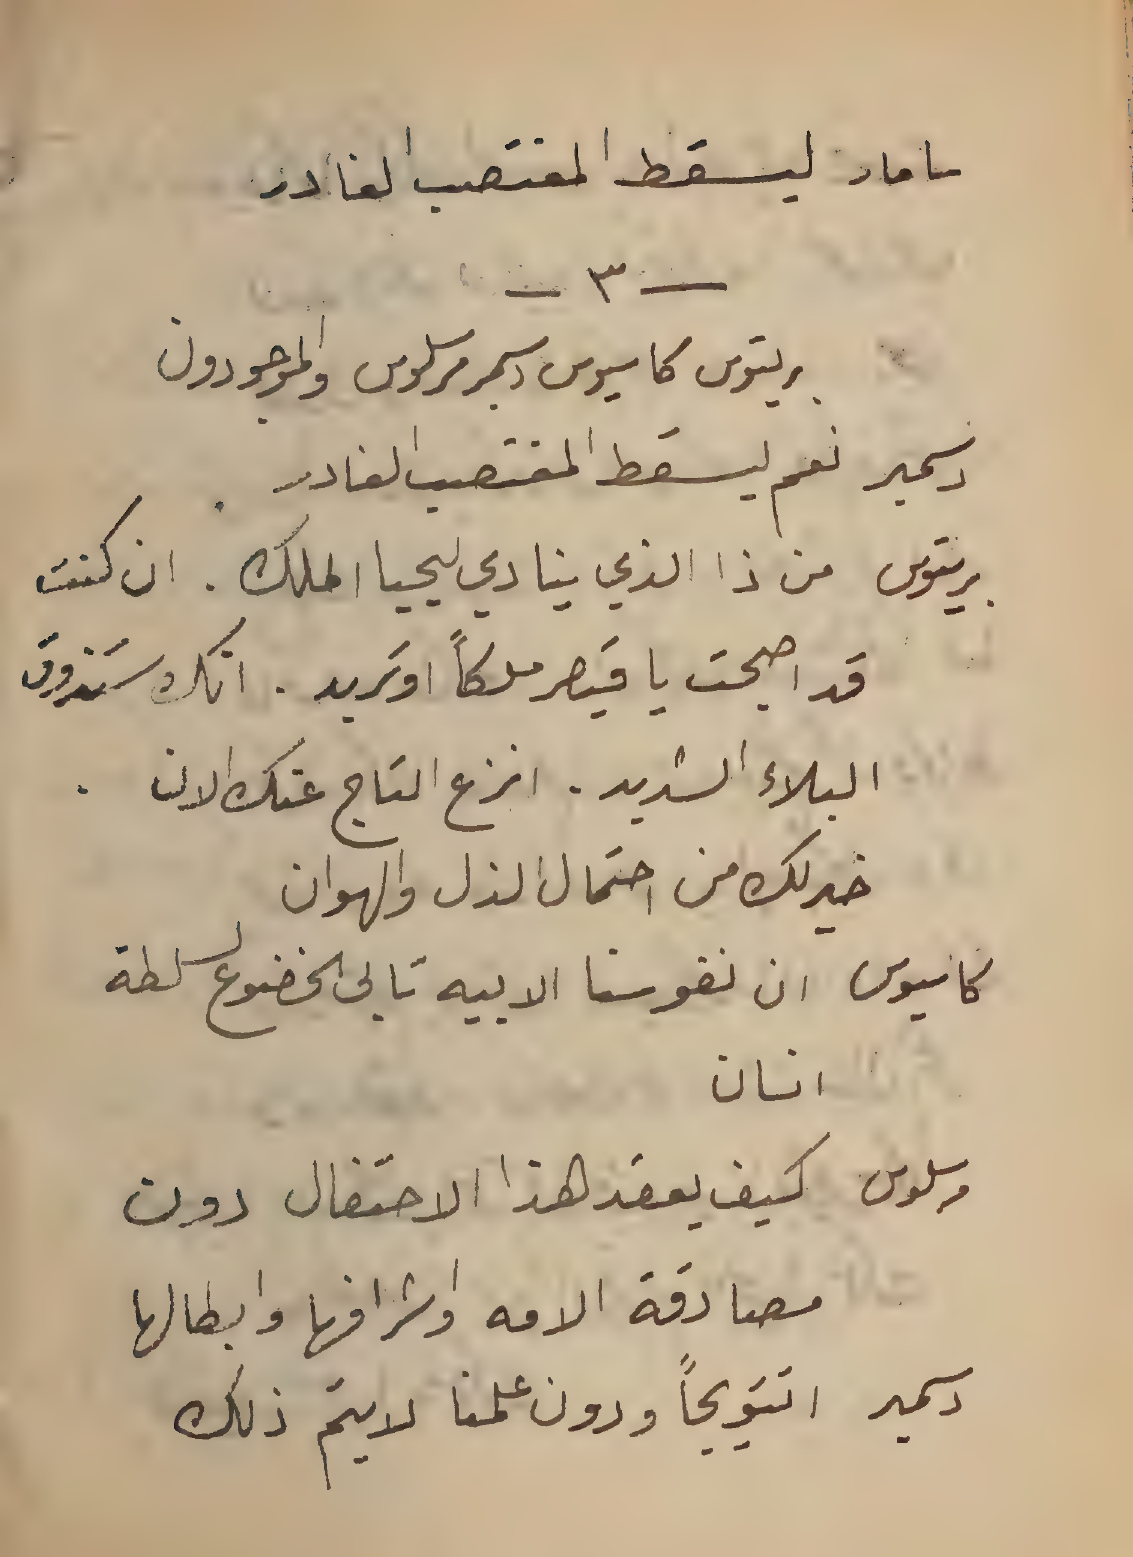 ليسقط المغتصب الغادر
— ٣ —
بريتوس كاسيوس دسمير مرسلوس والموجودون
دسمير نعم ليسقط المغتصب الغادر
بريتوس من ذا الذي ينادي ليحيا الملك . ان كنت
قد اصبحت يا قيصر ملكاً او تريد . انك ستذوق
البلاء الشديد . انزع التاج عنك الان .
خير لك من احتمال الذل والهوان
كاسيوس ان نفوسنا الابيه تابى الخضوع لسلطة
انسان
مرسلوس كيف يعقد هذا الاحتفال دون
مصادقة الامه واشرافها وابطالها
دسمير اتتويجاً ودون علمنا لا يتم ذلك